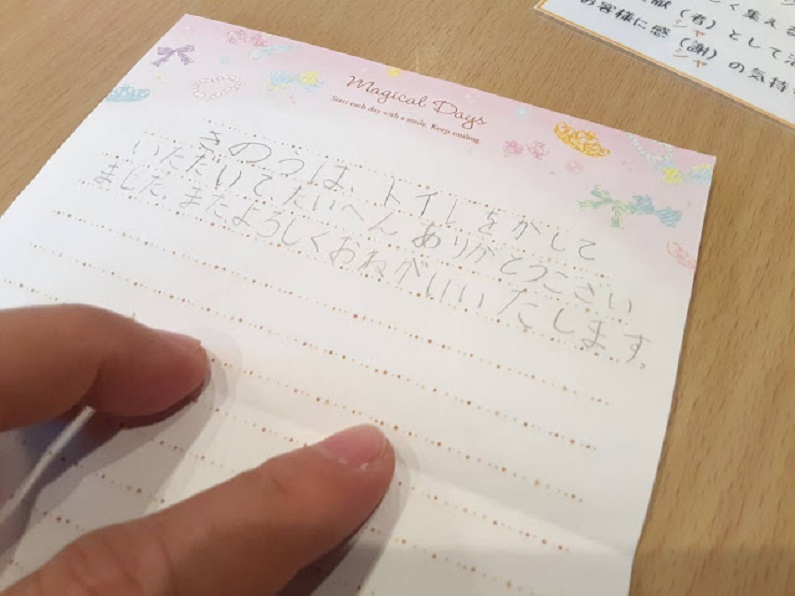 Magical Days
Start each day with a smile. Keep smiling.
きのうは、トイレをかして
いただいてたいへんありがとうござい
ました。またよろしくおねがいいたします。
く集える
献(者)として
シャ
お客様に感(謝)の気持
シャ